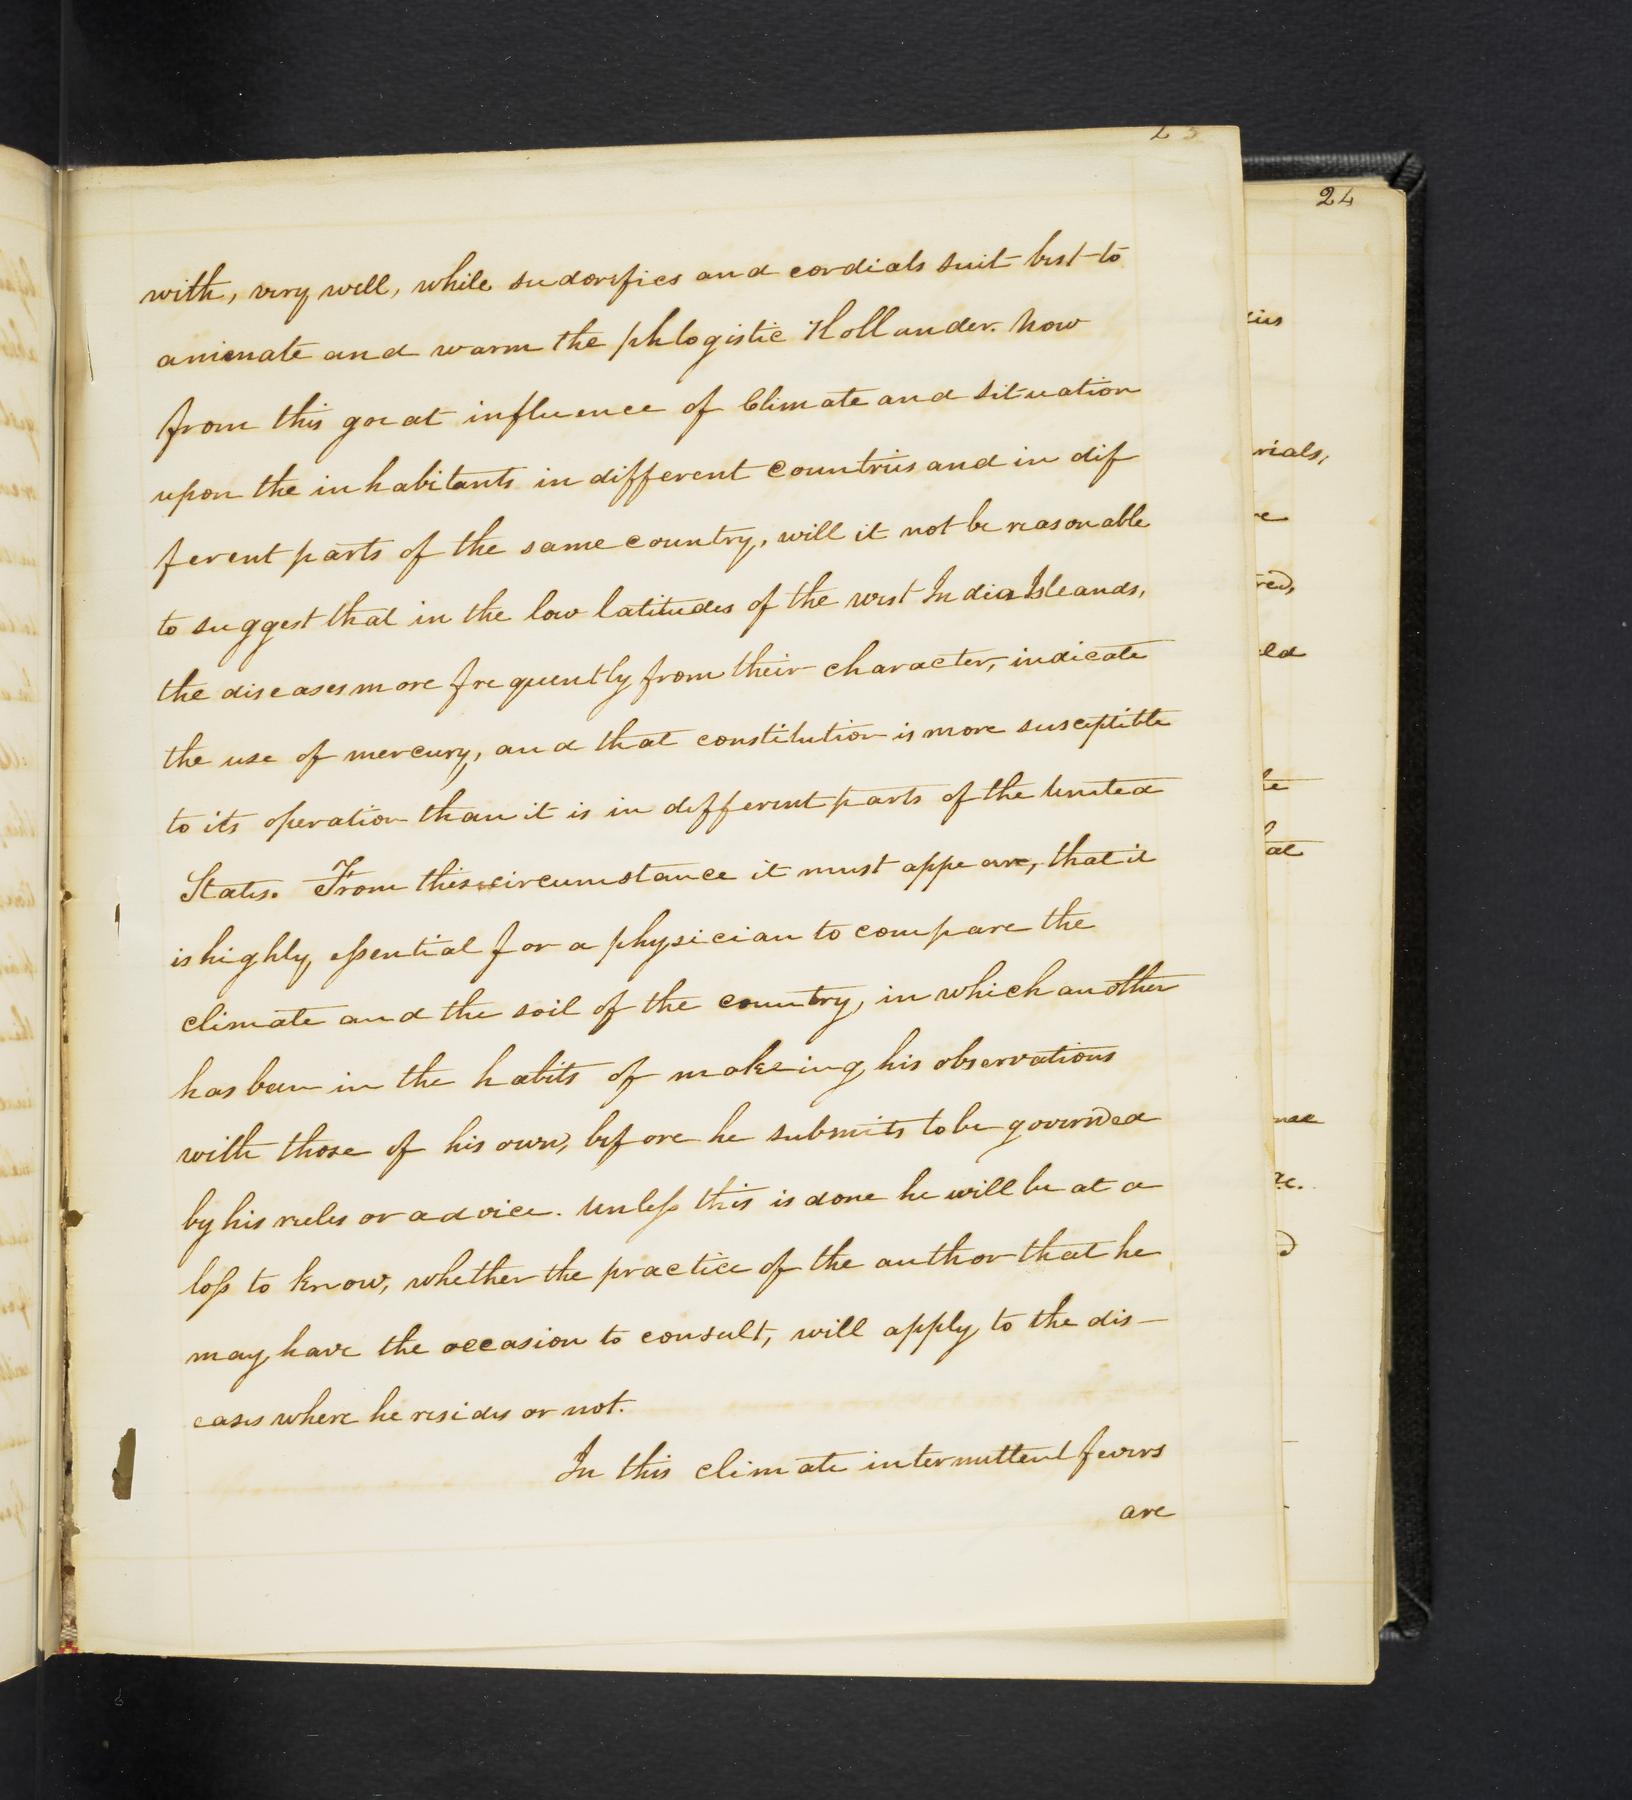 23
with, very well, while sudorifics and cordials suit best to
animate and warm the phlogistic Hollander. Now
from this great influence of Climate and situation
upon the inhabitants in different Countries and in dif
ferent parts of the same country, will it not be reasonable
to suggest that in the low latitudes of the west India Isleands,
the diseases more frequently from their character, indicate
the use of mercury, and that constitution is more susceptible
to its operation than it is in different parts of the United
States. From this circumstance it must appear, that it
is highly essential for a physician to compare the
climate and the soil of the country, in which another
has been in the habits of makeing his observations
with those of his own, before he submits to be governed
by his rules or advice. Unless this is done he will be at a
loss to know, whether the practice of the author that he
may have the occasion to consult, will apply to the dis-
eases where he resides or not.
In this climate intermittent fevers
are
24
rials,
red,
eld
hat